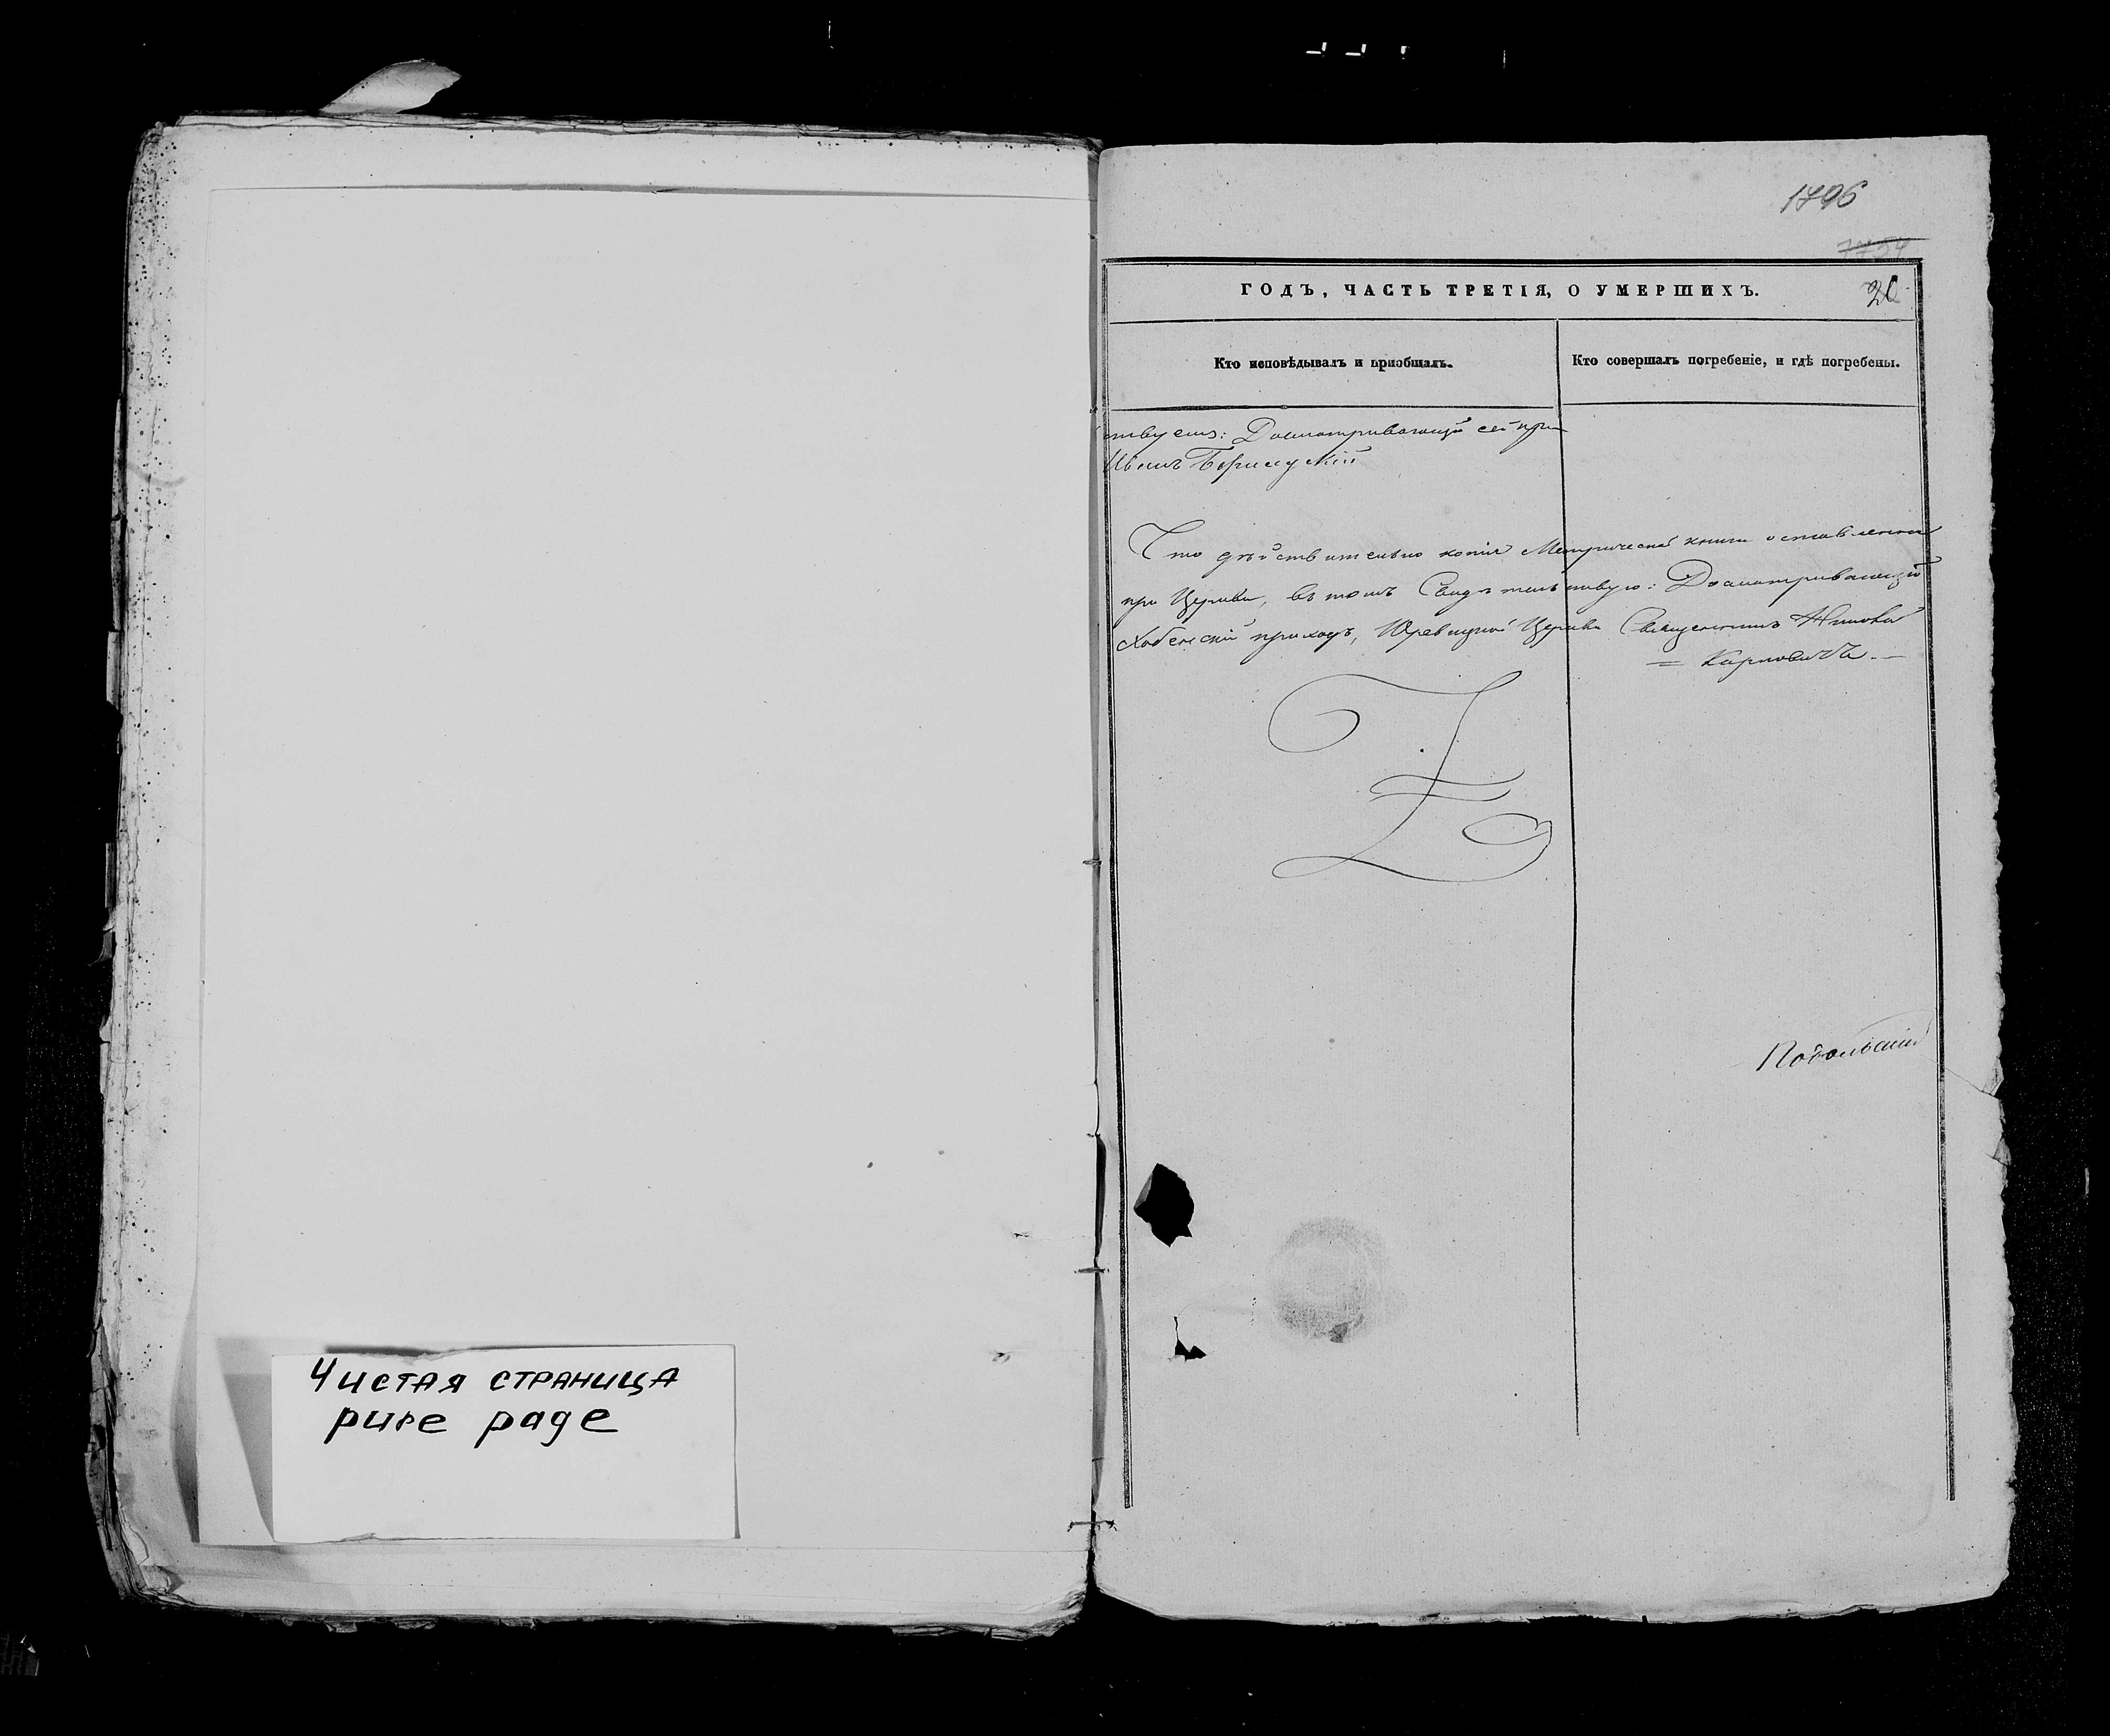 Чистая страница
pure page
1796
ГОДЪ, ЧАСТЬ ТРЕТІЯ, О УМЕРШИХЪ.
Кто исповѣдывалъ и пріобщалъ.
Кто совершалъ погребеніе, и гдѣ погребены.
ствуемъ: Досматривающій сей при
Что дѣйствительно копія Метрической книги оставленна
при Церкви, въ томъ Свидѣтельствую: Досматривающій
приходъ, Юревицкой Церкви Священникъ
Карповичъ